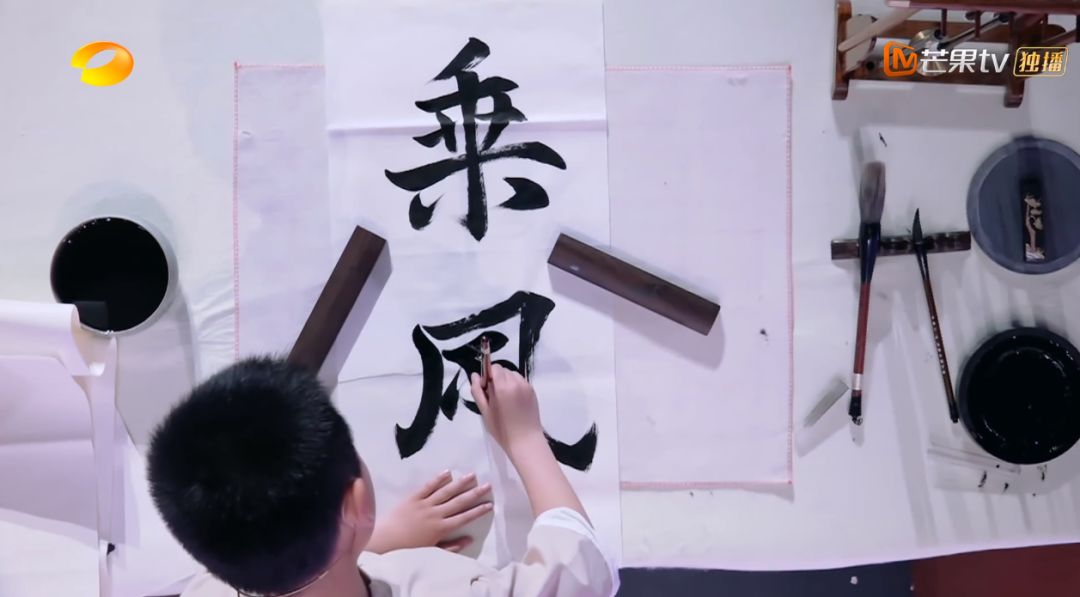 芒果tv 独播
乘
風